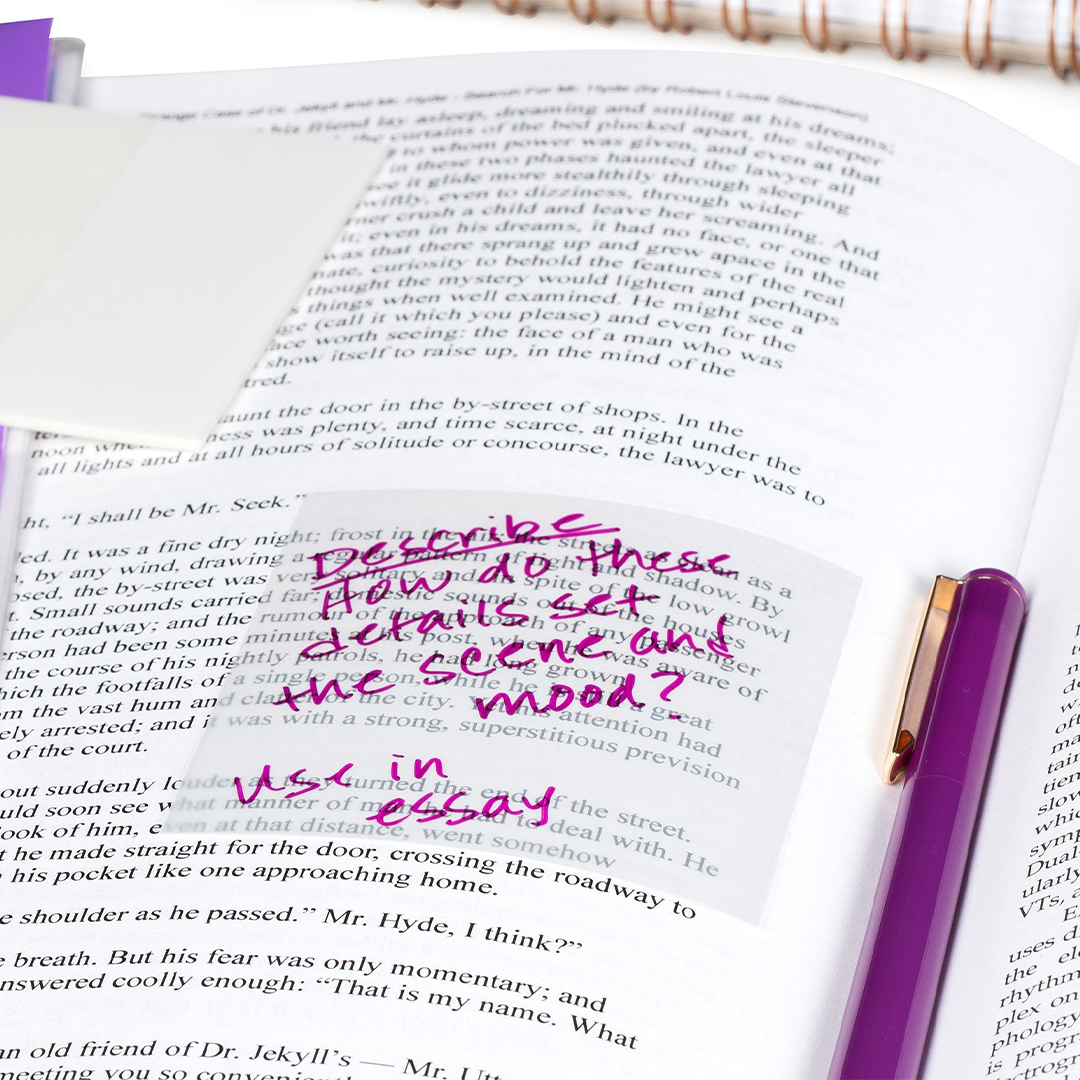 Strange Case of Dr. Jekyll and Mr. Hyde - Search For Mr. Hyde (by Robert Louis Stevenson)
his friend lay asleep, dreaming and smiling at his dreams;
the curtains of the bed plucked apart, the sleeper
to whom power was given, and even at that
in these two phases haunted the lawyer all
see it glide more stealthily through sleeping
swiftly, even to dizziness, through wider
crush a child and leave her screaming. And
it; even in his dreams, it had no face, or one that
was that there sprang up and grew apace in the
curiosity to behold the features of the real
thought the mystery would lighten and perhaps
things when well examined. He might see a
(call it which you please) and even for the
face worth seeing: the face of a man who was
show itself to raise up, in the mind of the
tred.
aunt the door in the by-street of shops. In the
noon when ness was plenty, and time scarce, at night under the
all lights and at all hours of solitude or concourse, the lawyer was to
ht, “I shall be Mr. Seek.”
led. It was a fine dry night; frost in the air; the streets as
, by any wind, drawing a regular pattern of light and shadow. By
osed, the by-street was very solitary and, in spite of the low growl
t. Small sounds carried far; domestic sounds out of the houses
the roadway; and the rumour of the approach of any passenger
erson had been some minutes at his post, when he was aware of
the course of his nightly patrols, he had long grown
hich the footfalls of a single person, while he is great
m the vast hum and clatter of the city. Yet his attention had
ely arrested; and it was with a strong, superstitious prevision
of the court.
out suddenly louder as they turned the end of the street.
ould soon see what manner of man he had to deal with. He
look of him, even at that distance, went somehow
t he made straight for the door, crossing the roadway to
his pocket like one approaching home.
e shoulder as he passed.” Mr. Hyde, I think?”
e breath. But his fear was only momentary; and
nswered coolly enough: “That is my name. What
an old friend of Dr. Jekyll’s — Mr. Utt
meeting you so convenient
Describe
How do these
details set
the scene and
mood?
Use in
essay
which
symp
Dual
ularly
VTs, a
uses d
the el
rhythm
plex on
phology
is progr